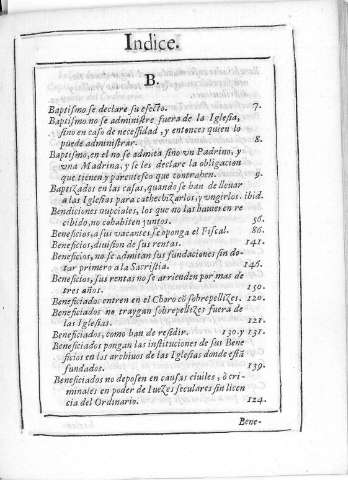 Indice.
B.
Baptiſmo ſe declare ſu efecto. 7.
Baptiſmo no ſe adminiſtre fuera de la Igleſia,
ſino en caſo de neceſsidad, y entonces quien lo
puede adminiſtrar. 8.
Baptiſmo, en el no ſe admita ſino vn Padrino, y
vna Madrina, y ſe les declare la obligacion
que tienen y parenteſco que contrahen. 9.
Baptizados en las caſas, quando ſe han de lleuar
a las Igleſias para cathechizarlos, y vngirlos. ibid.
Bendiciones nupciales, los que no las huuieren re
cibido, no cohabiten juntos. 56.
Beneficios, a ſus vacantes ſe oponga el Fiſcal. 86.
Beneficios, diuiſion de ſus rentas. 141.
Beneficios, no ſe admitan ſus fundaciones ſin do-
tar primero a la Sacriſtia. 146.
Beneficios, ſus rentas no ſe arrienden por mas de
tres años. 150.
Beneficiados entren en el Choro cō ſobrepellizes. 120.
Beneficiados no traygan ſobrepellizes fuera de
las Igleſias. 121.
Beneficiados, como han de reſidir. 130. y 131.
Beneficiados pongan las inſtituciones de ſus Bene
ficios en los archiuos de las Igleſias donde eſtā
fundados. 139.
Beneficiados no depoſen en cauſas ciuiles, ò cri-
minales en poder de Iuezes ſeculares ſin licen
cia del Ordinario. 124.
Bene-